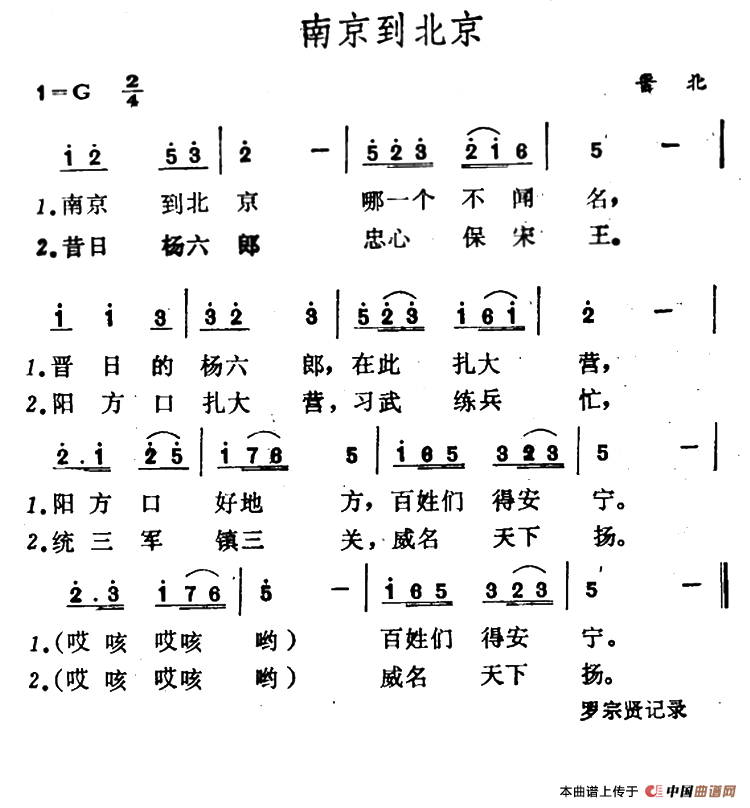 南京到北京
1=G 2/4 晋北
1 2 5 3 | 2 — | 5 2 3 2 1 6 | 5 — |
1.南京 到北 京 哪一个 不闻 名，
2.昔日 杨六 郎 忠心 保宋 王。
1 1 3 | 3 2 3 | 5 2 3 1 6 1 | 2 — |
1.晋日的杨六 郎，在此 扎大 营，
2.阳方口扎大 营，习武 练兵 忙，
2. 1 2 5 | 1 7 6 5 | 1 6 5 3 2 3 | 5 — |
1.阳方口 好地 方，百姓们 得安 宁。
2.统三军 镇三 关，威名 天下 扬。
2. 3 1 7 6 | 5 — | 1 6 5 3 2 3 | 5 — ‖
1.(哎咳 哎咳 哟) 百姓们 得安 宁。
2.(哎咳 哎咳 哟) 威名 天下 扬。
罗宗贤记录
本曲谱上传于 中国曲谱网